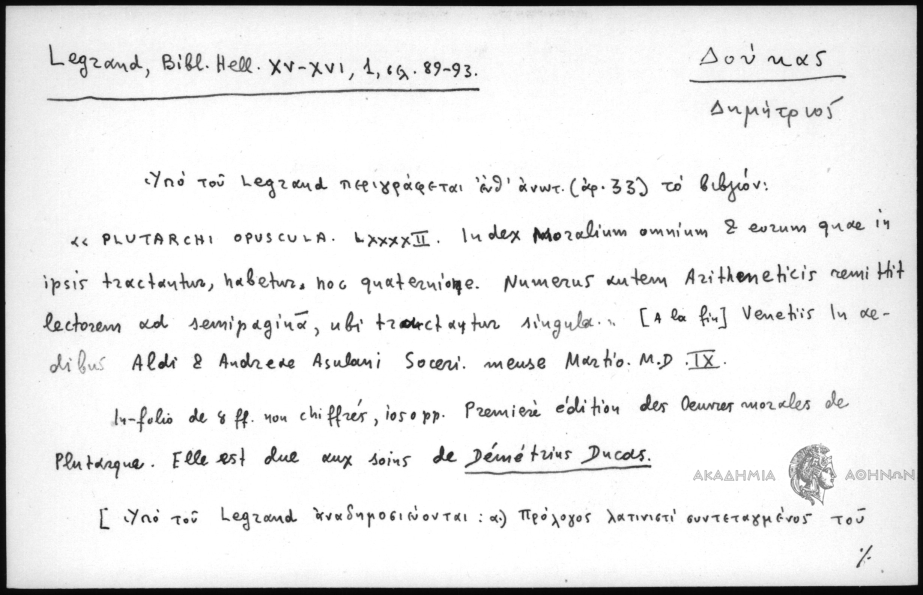 Legrand, Bibl. Hell. XV-XVI, 1, σς. 89-93.
Δούκας
Δημήτριος
Ὑπό τοῦ Legrand περιγράφεται ἐνθ' ἀνωτ. (ἀρ. 33) τό βιβλίον:
« PLUTARCHI OPUSCULA. LXXXXII. Index Moralium omnium & eorum quae in
ipsis tractantur, habetur, hoc quaternione. Numerus autem Arithmeticis remittit
lectorem ad semipaginā, ubi tractantur singula.. [A la fin] Venetiis In ae-
dibus Aldi & Andreae Asulani Soceri. mense Martio. M.D.IX.
In-folio de 8 ff. non chiffrés, 1050 pp. Première édition des Oeuvres morales de
Plutarque. Elle est due aux soins de Démétrius Ducas.
ΑΚΑΔΗΜΙΑ ΑΘΗΝΩΝ
[Ὑπό τοῦ Legrand ἀναδημοσιεύονται: α) Πρόλογος λατινιστί συντεταγμένος τοῦ
%